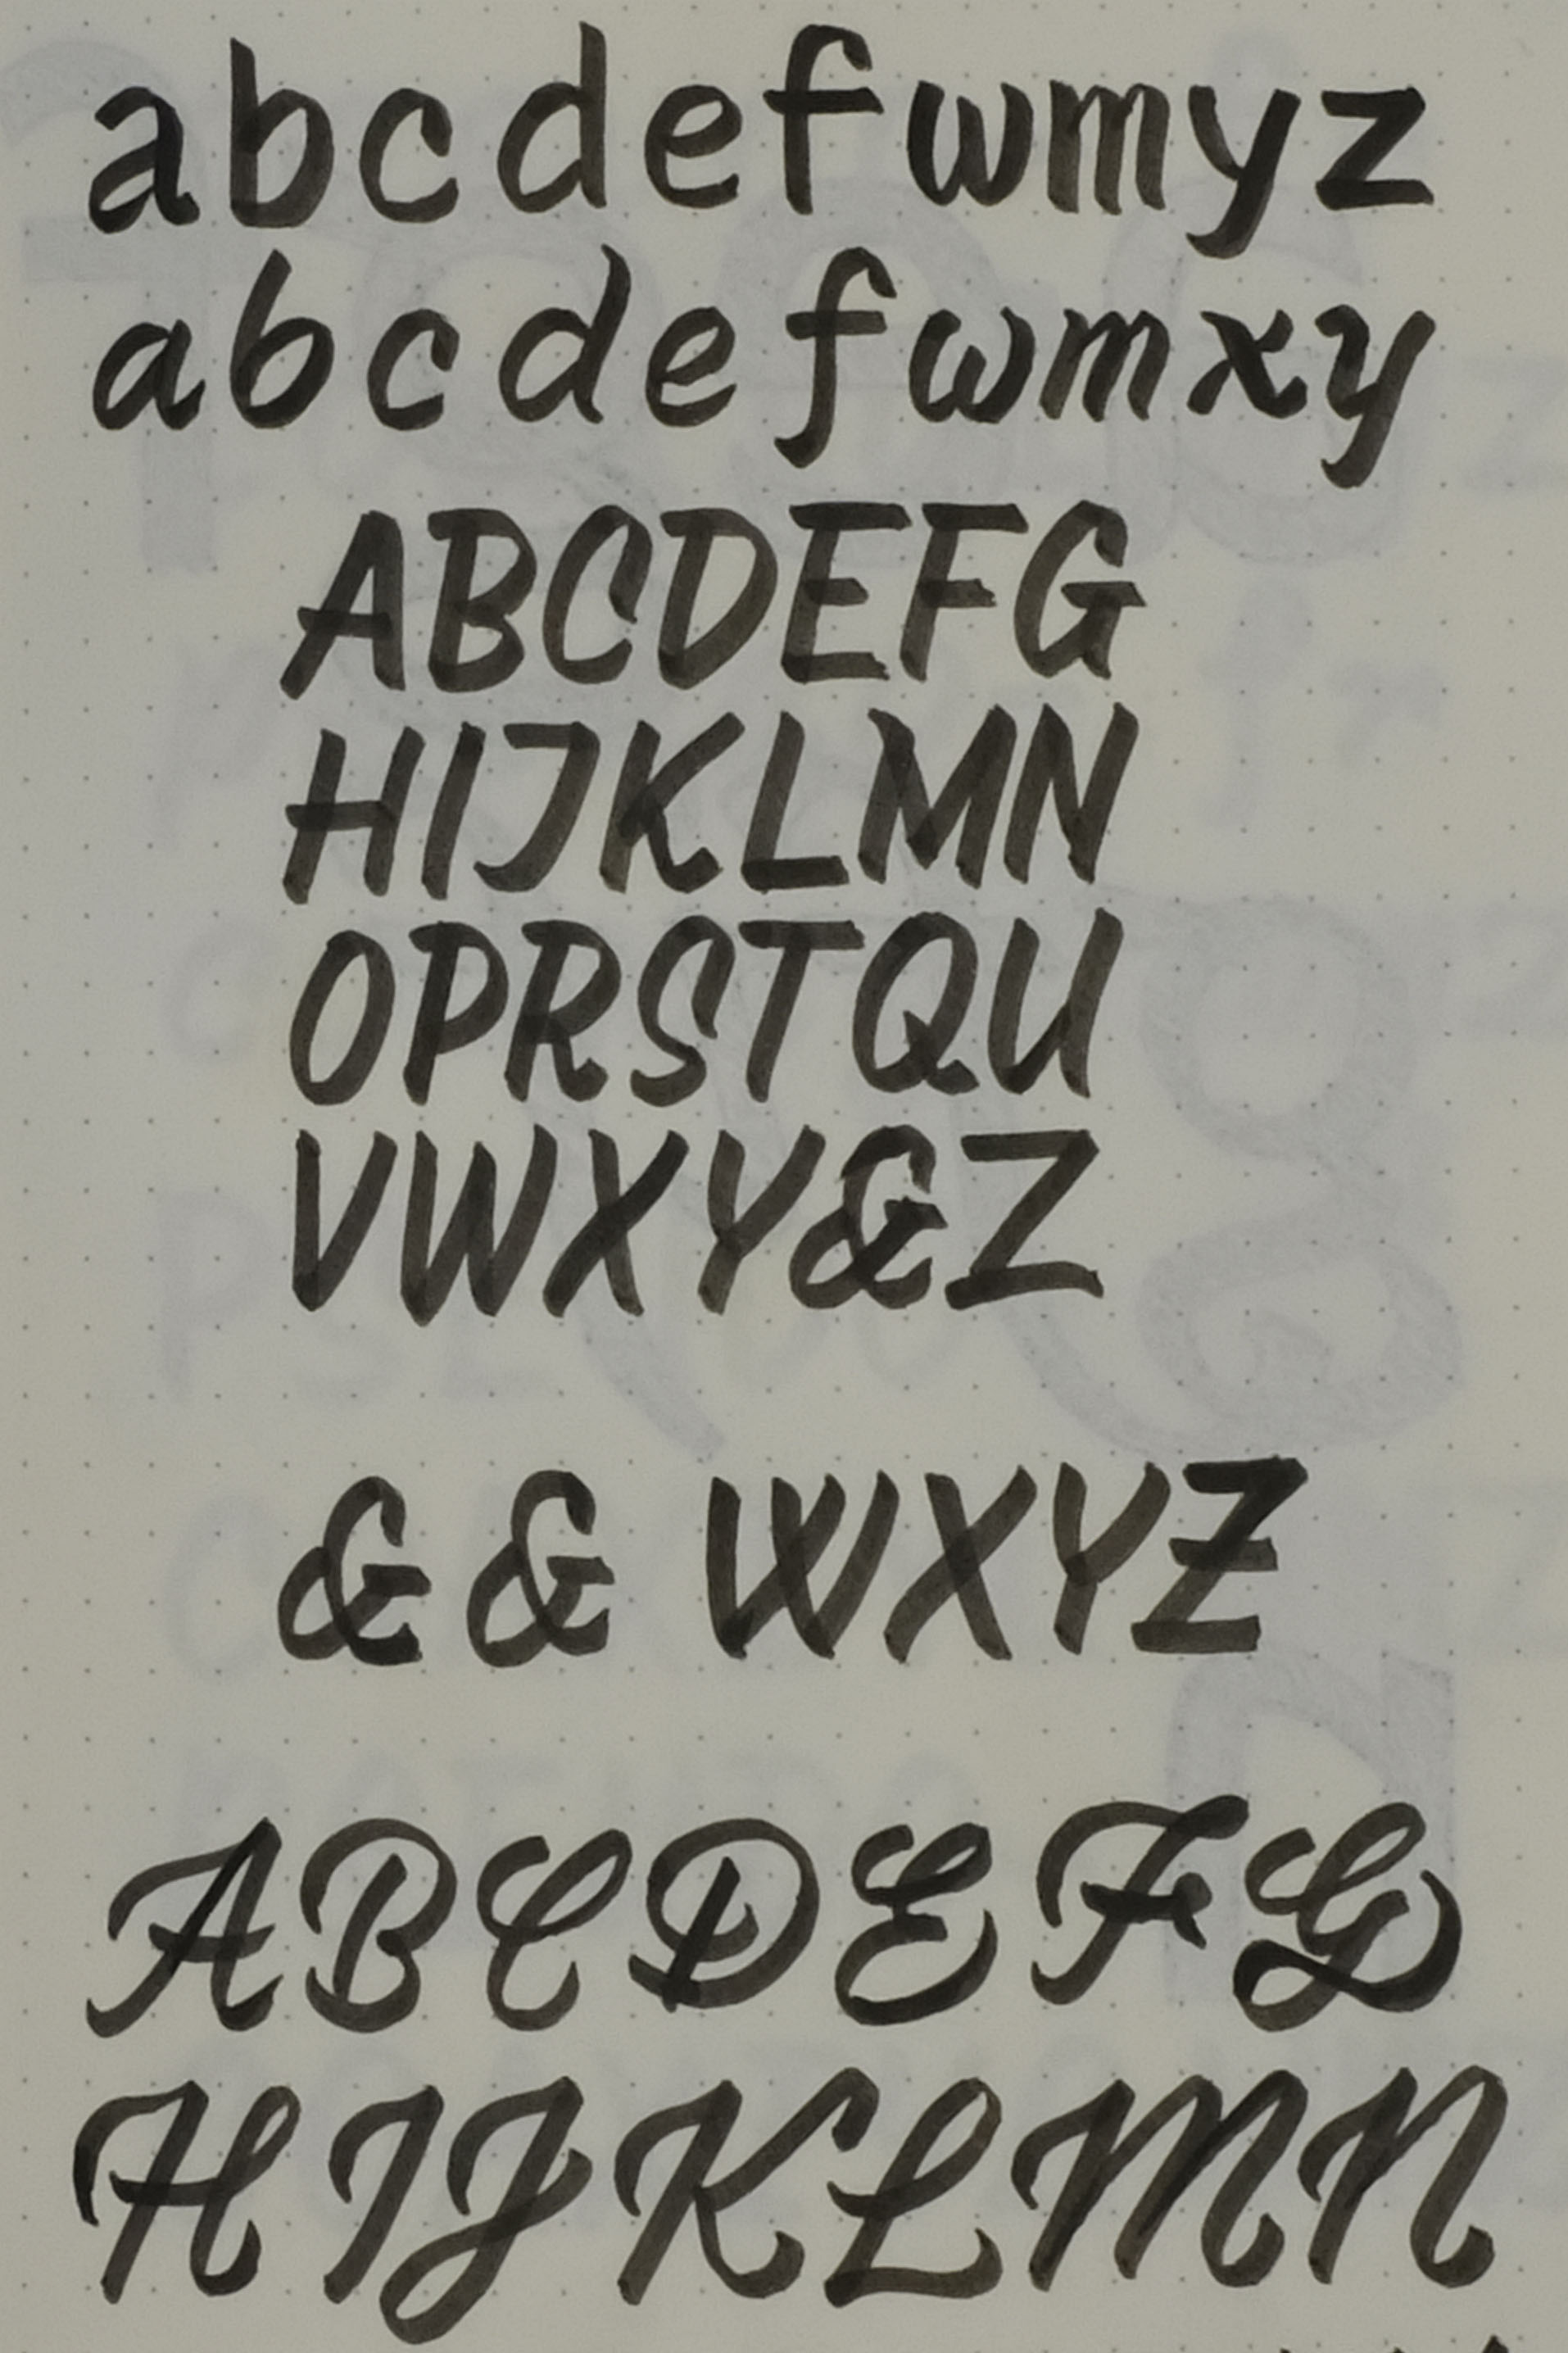 abcdefwmyz
abcdefwmxy
ABCDEFG
HIJKLMN
OPRSTQU
VWXY&Z
& & WXYZ
ABCDEFG
HIJKLMN